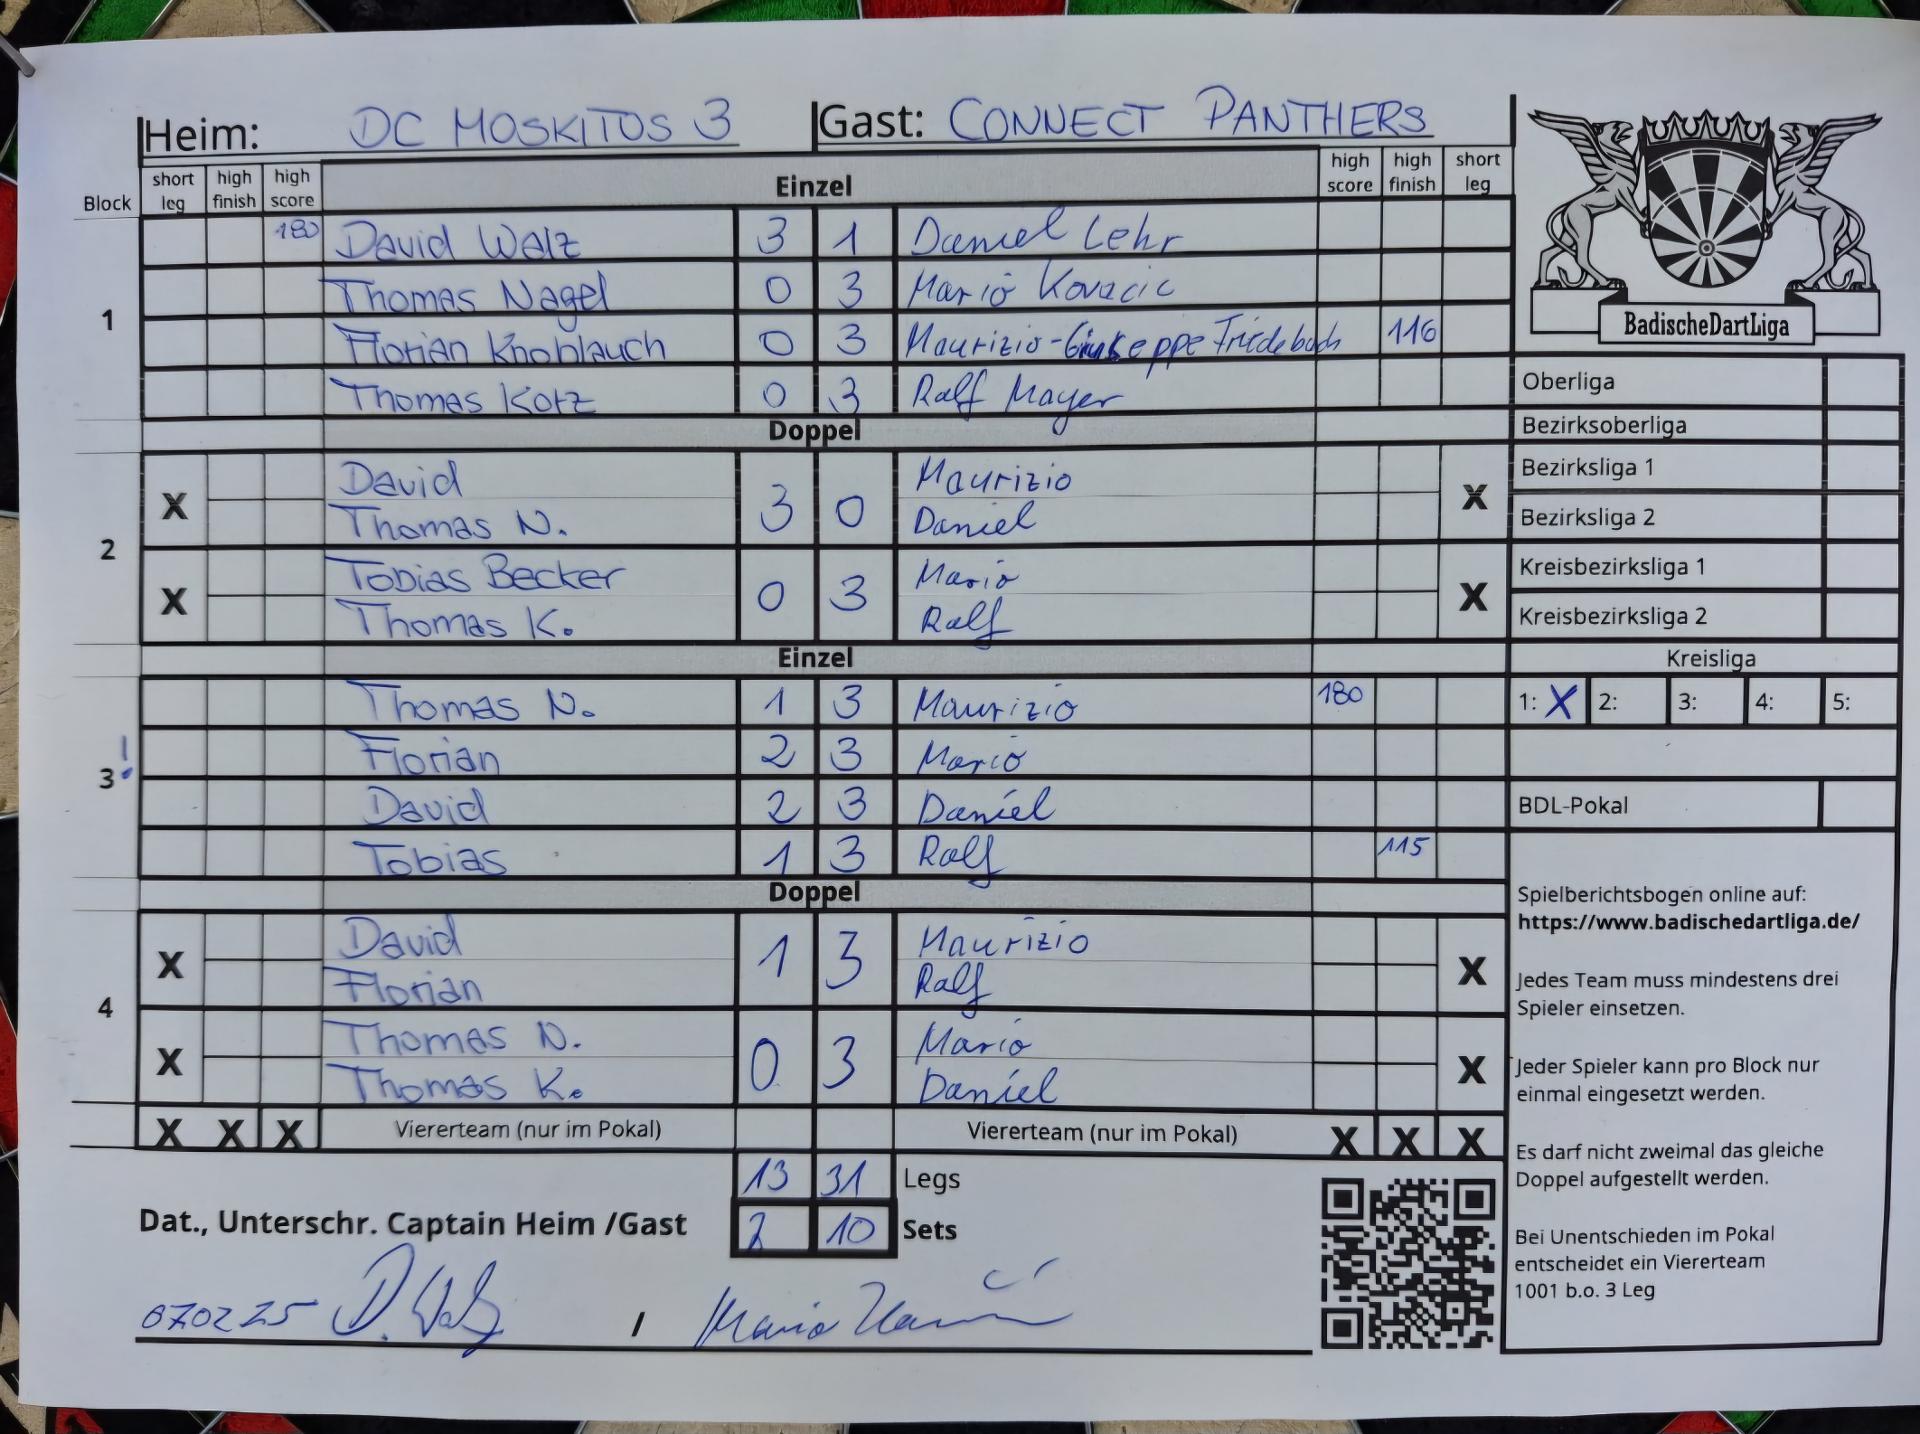 Heim: DC MOSKITOS 3 Gast: CONNECT PANTHERS
Block short leg high finish high score Einzel high score high finish short leg
1
180 David Walz 3 1 Daniel Lehr
Thomas Nagel 0 3 Mario Kovacic
Florian Knoblauch 0 3 Maurizio-Giuseppe Friedebach 116
Thomas Kotz 0 3 Ralf Mayer
Doppel
2
X David 3 0 Maurizio X
Thomas N. Daniel
X Tobias Becker 0 3 Mario X
Thomas K. Ralf
Einzel
3 !
Thomas N. 1 3 Maurizio 180
Florian 2 3 Mario
David 2 3 Daniel
Tobias 1 3 Ralf 115
Doppel
4
X David 1 3 Maurizio X
Florian Ralf
X Thomas N. 0 3 Mario X
Thomas K. Daniel
X X X Viererteam (nur im Pokal) Viererteam (nur im Pokal) X X X
13 31 Legs
2 10 Sets
Dat., Unterschr. Captain Heim /Gast
070225 D. Walz / Mario
BadischeDartLiga
Oberliga
Bezirksoberliga
Bezirksliga 1
Bezirksliga 2
Kreisbezirksliga 1
Kreisbezirksliga 2
Kreisliga
1: X 2: 3: 4: 5:
BDL-Pokal
Spielberichtsbogen online auf:
https://www.badischedartliga.de/
Jedes Team muss mindestens drei
Spieler einsetzen.
Jeder Spieler kann pro Block nur
einmal eingesetzt werden.
Es darf nicht zweimal das gleiche
Doppel aufgestellt werden.
Bei Unentschieden im Pokal
entscheidet ein Viererteam
1001 b.o. 3 Leg